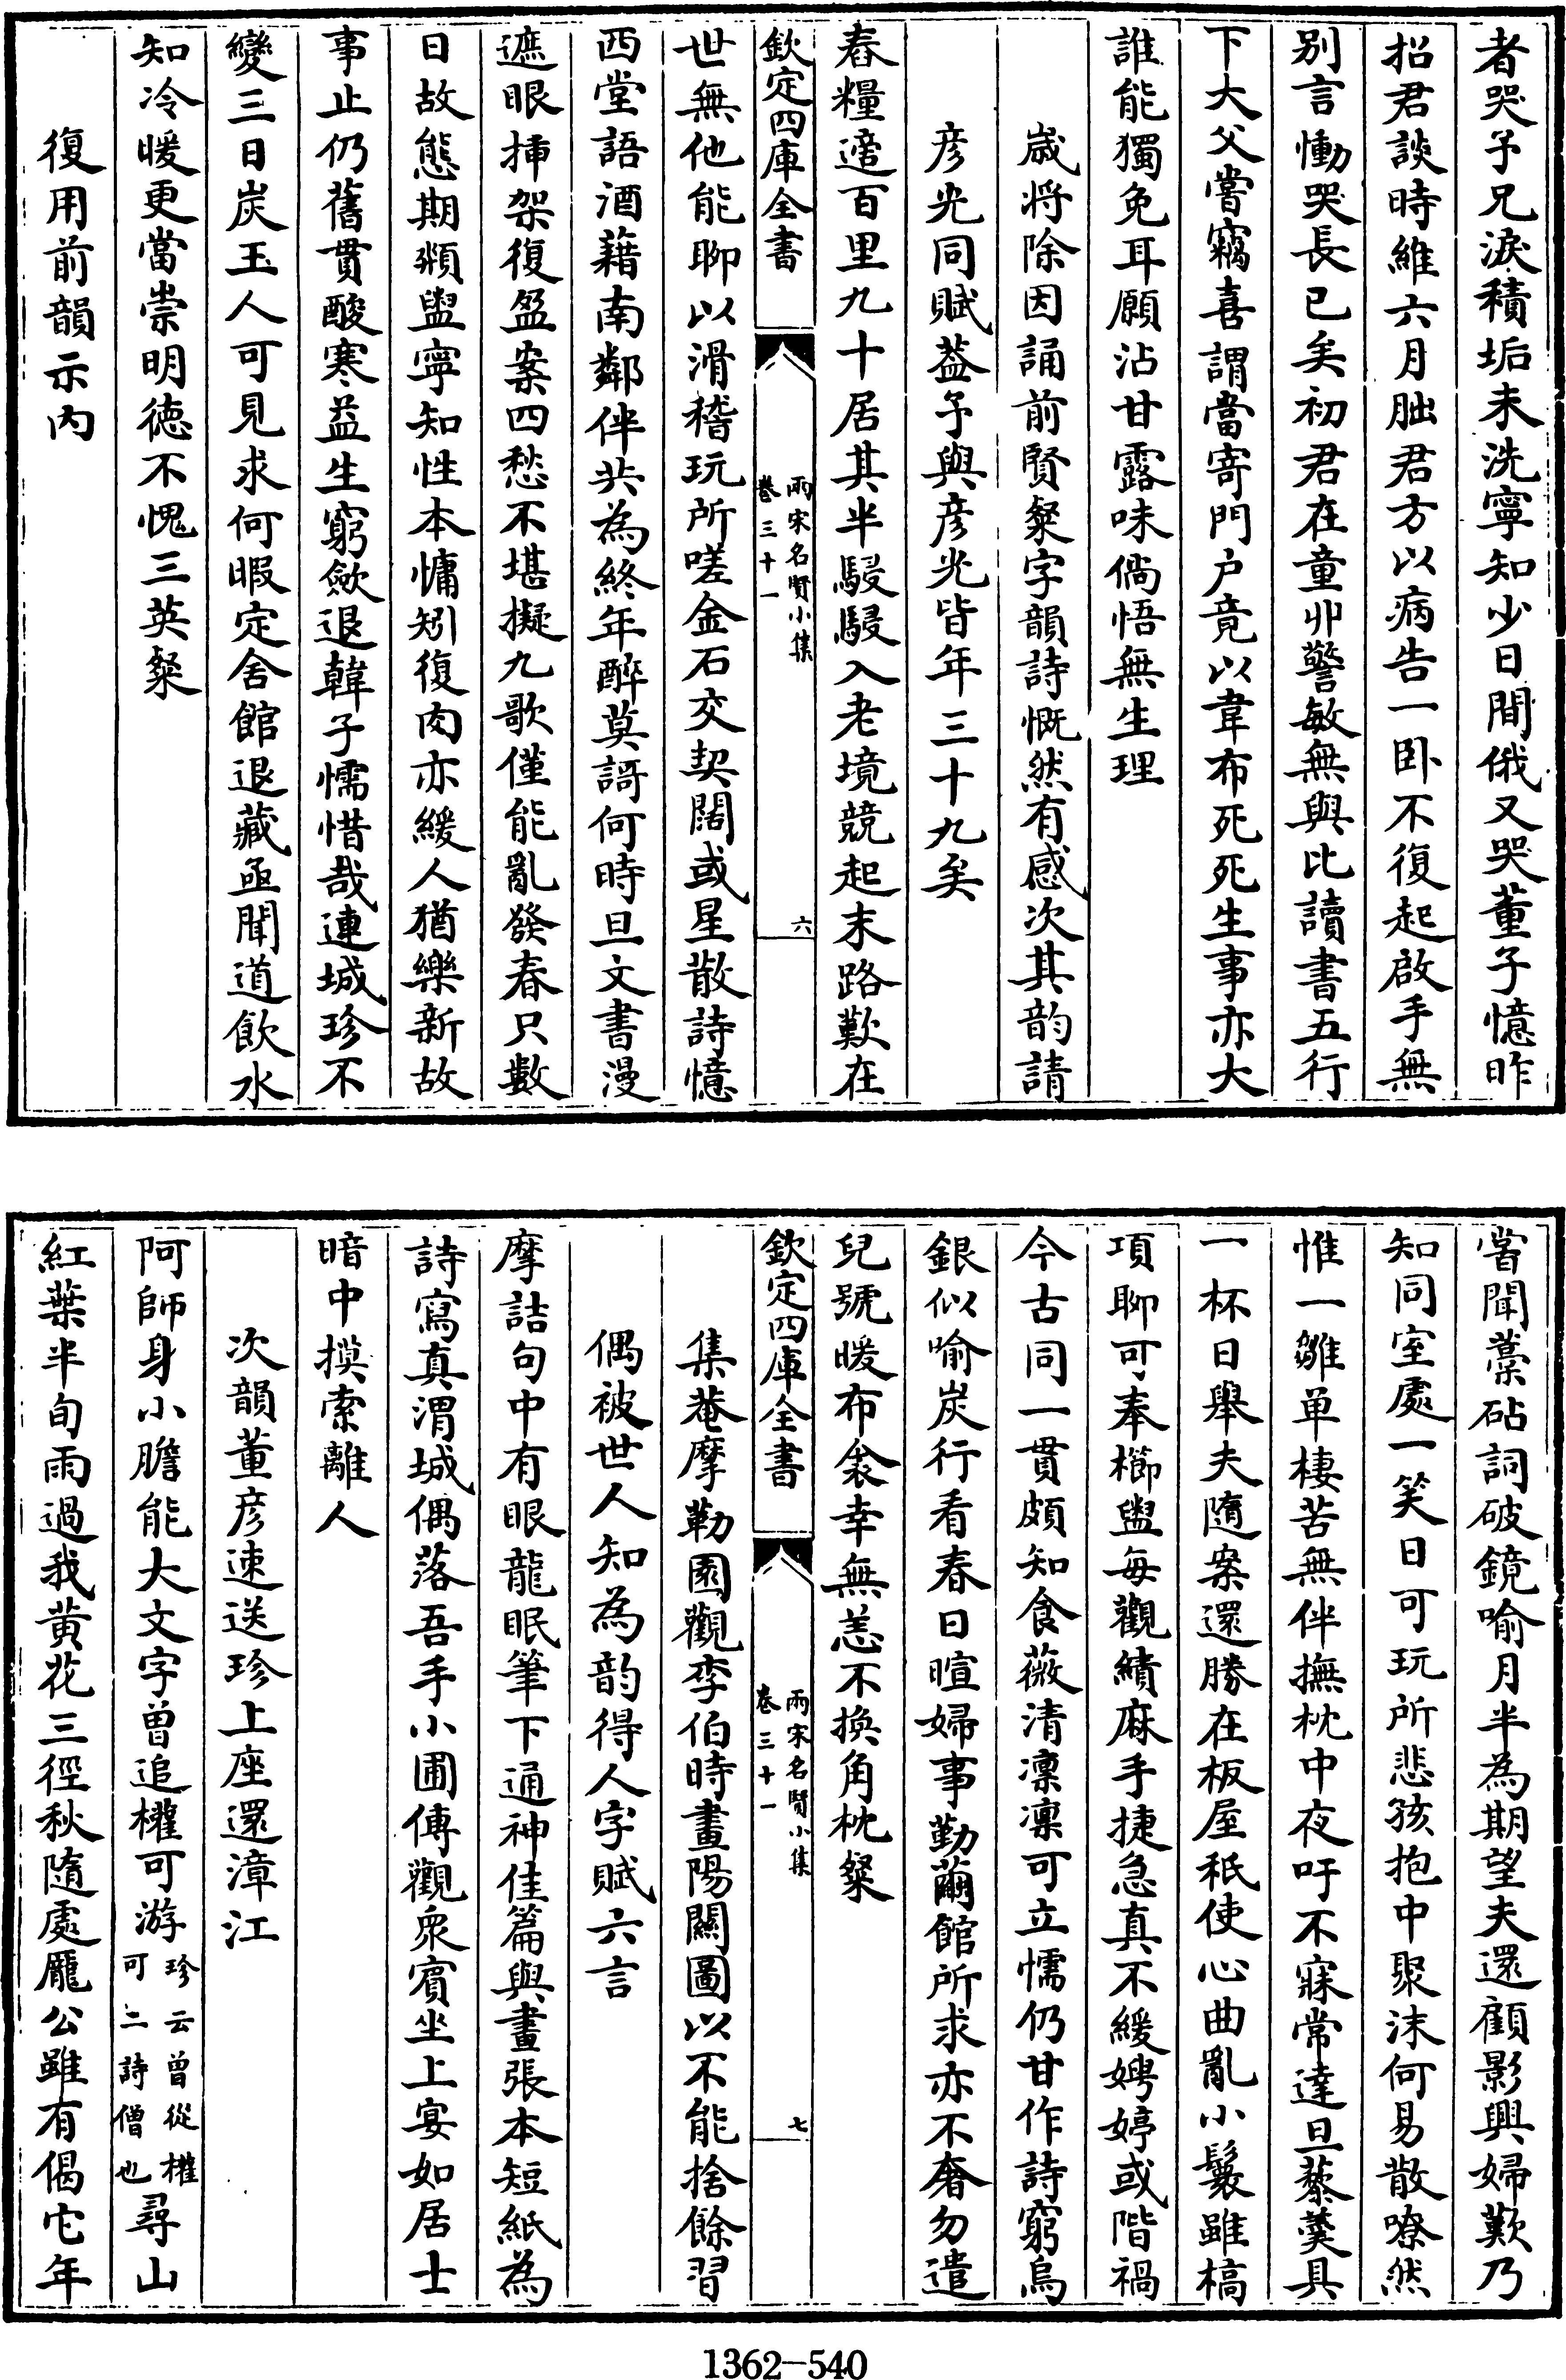 者哭予兄淚積垢未洗寧知少日間俄又哭董子憶昨
招君談時維六月朏君方以病告一卧不復起啟手無
别言慟哭長已矣初君在童丱警敏無與比讀書五行
下大父嘗竊喜謂當寄門户竟以韋布死死生事亦大
誰能獨免耳願沾甘露味倘悟無生理
歳將除因誦前賢粲字韻詩慨然有感次其韵請
彦光同賦葢予與彦光皆年三十九矣
舂糧適百里九十居其半駸駸入老境競起末路歎在
欽定四庫全書
兩宋名賢小集
卷三十一
六
世無他能聊以滑稽玩所嗟金石交契闊或星散詩憶
西堂語酒藉南鄰伴共為終年醉莫訶何時旦文書漫
遮眼揷架復盈案四愁不堪擬九歌僅能亂發春只數
日故態期頮盥寧知性本慵矧復肉亦緩人猶樂新故
事止仍舊貫酸寒益生窮歛退韓子懦惜哉連城珍不
變三日炭玉人可見求何暇定舍館退藏亟聞道飲水
知冷暖更當崇明徳不愧三英粲
復用前韻示内
嘗聞藁砧詞破鏡喻月半為期望夫還顧影興婦歎乃
知同室處一笑日可玩所悲孩抱中聚沫何易散嘹然
惟一雛单棲苦無伴撫枕中夜吁不寐常達旦藜羮具
一杯日舉夫隨案還勝在板屋秖使心曲亂小鬟雖槁
項聊可奉櫛盥每觀績麻手捷急真不緩娉婷或階禍
今古同一貫頗知食薇清凜凜可立懦仍甘作詩窮烏
銀似喻炭行看春日暄婦事勤繭館所求亦不奢勿遣
兒號暖布衾幸無恙不換角枕粲
欽定四庫全書
兩宋名賢小集
卷三十一
七
集菴摩勒園觀李伯時畫陽關圖以不能捨餘習
偶被世人知為韵得人字賦六言
摩詰句中有眼龍眠筆下通神佳篇與畫張本短紙為
詩寫真渭城偶落吾手小圃傳觀衆賓坐上宴如居士
暗中摸索離人
次韻董彦速送珍上座還漳江
阿師身小膽能大文字曽追權可游珍云曽從權可二詩僧也尋山
紅葉半旬雨過我黄花三徑秋隨處龎公雖有偈它年
1362-540